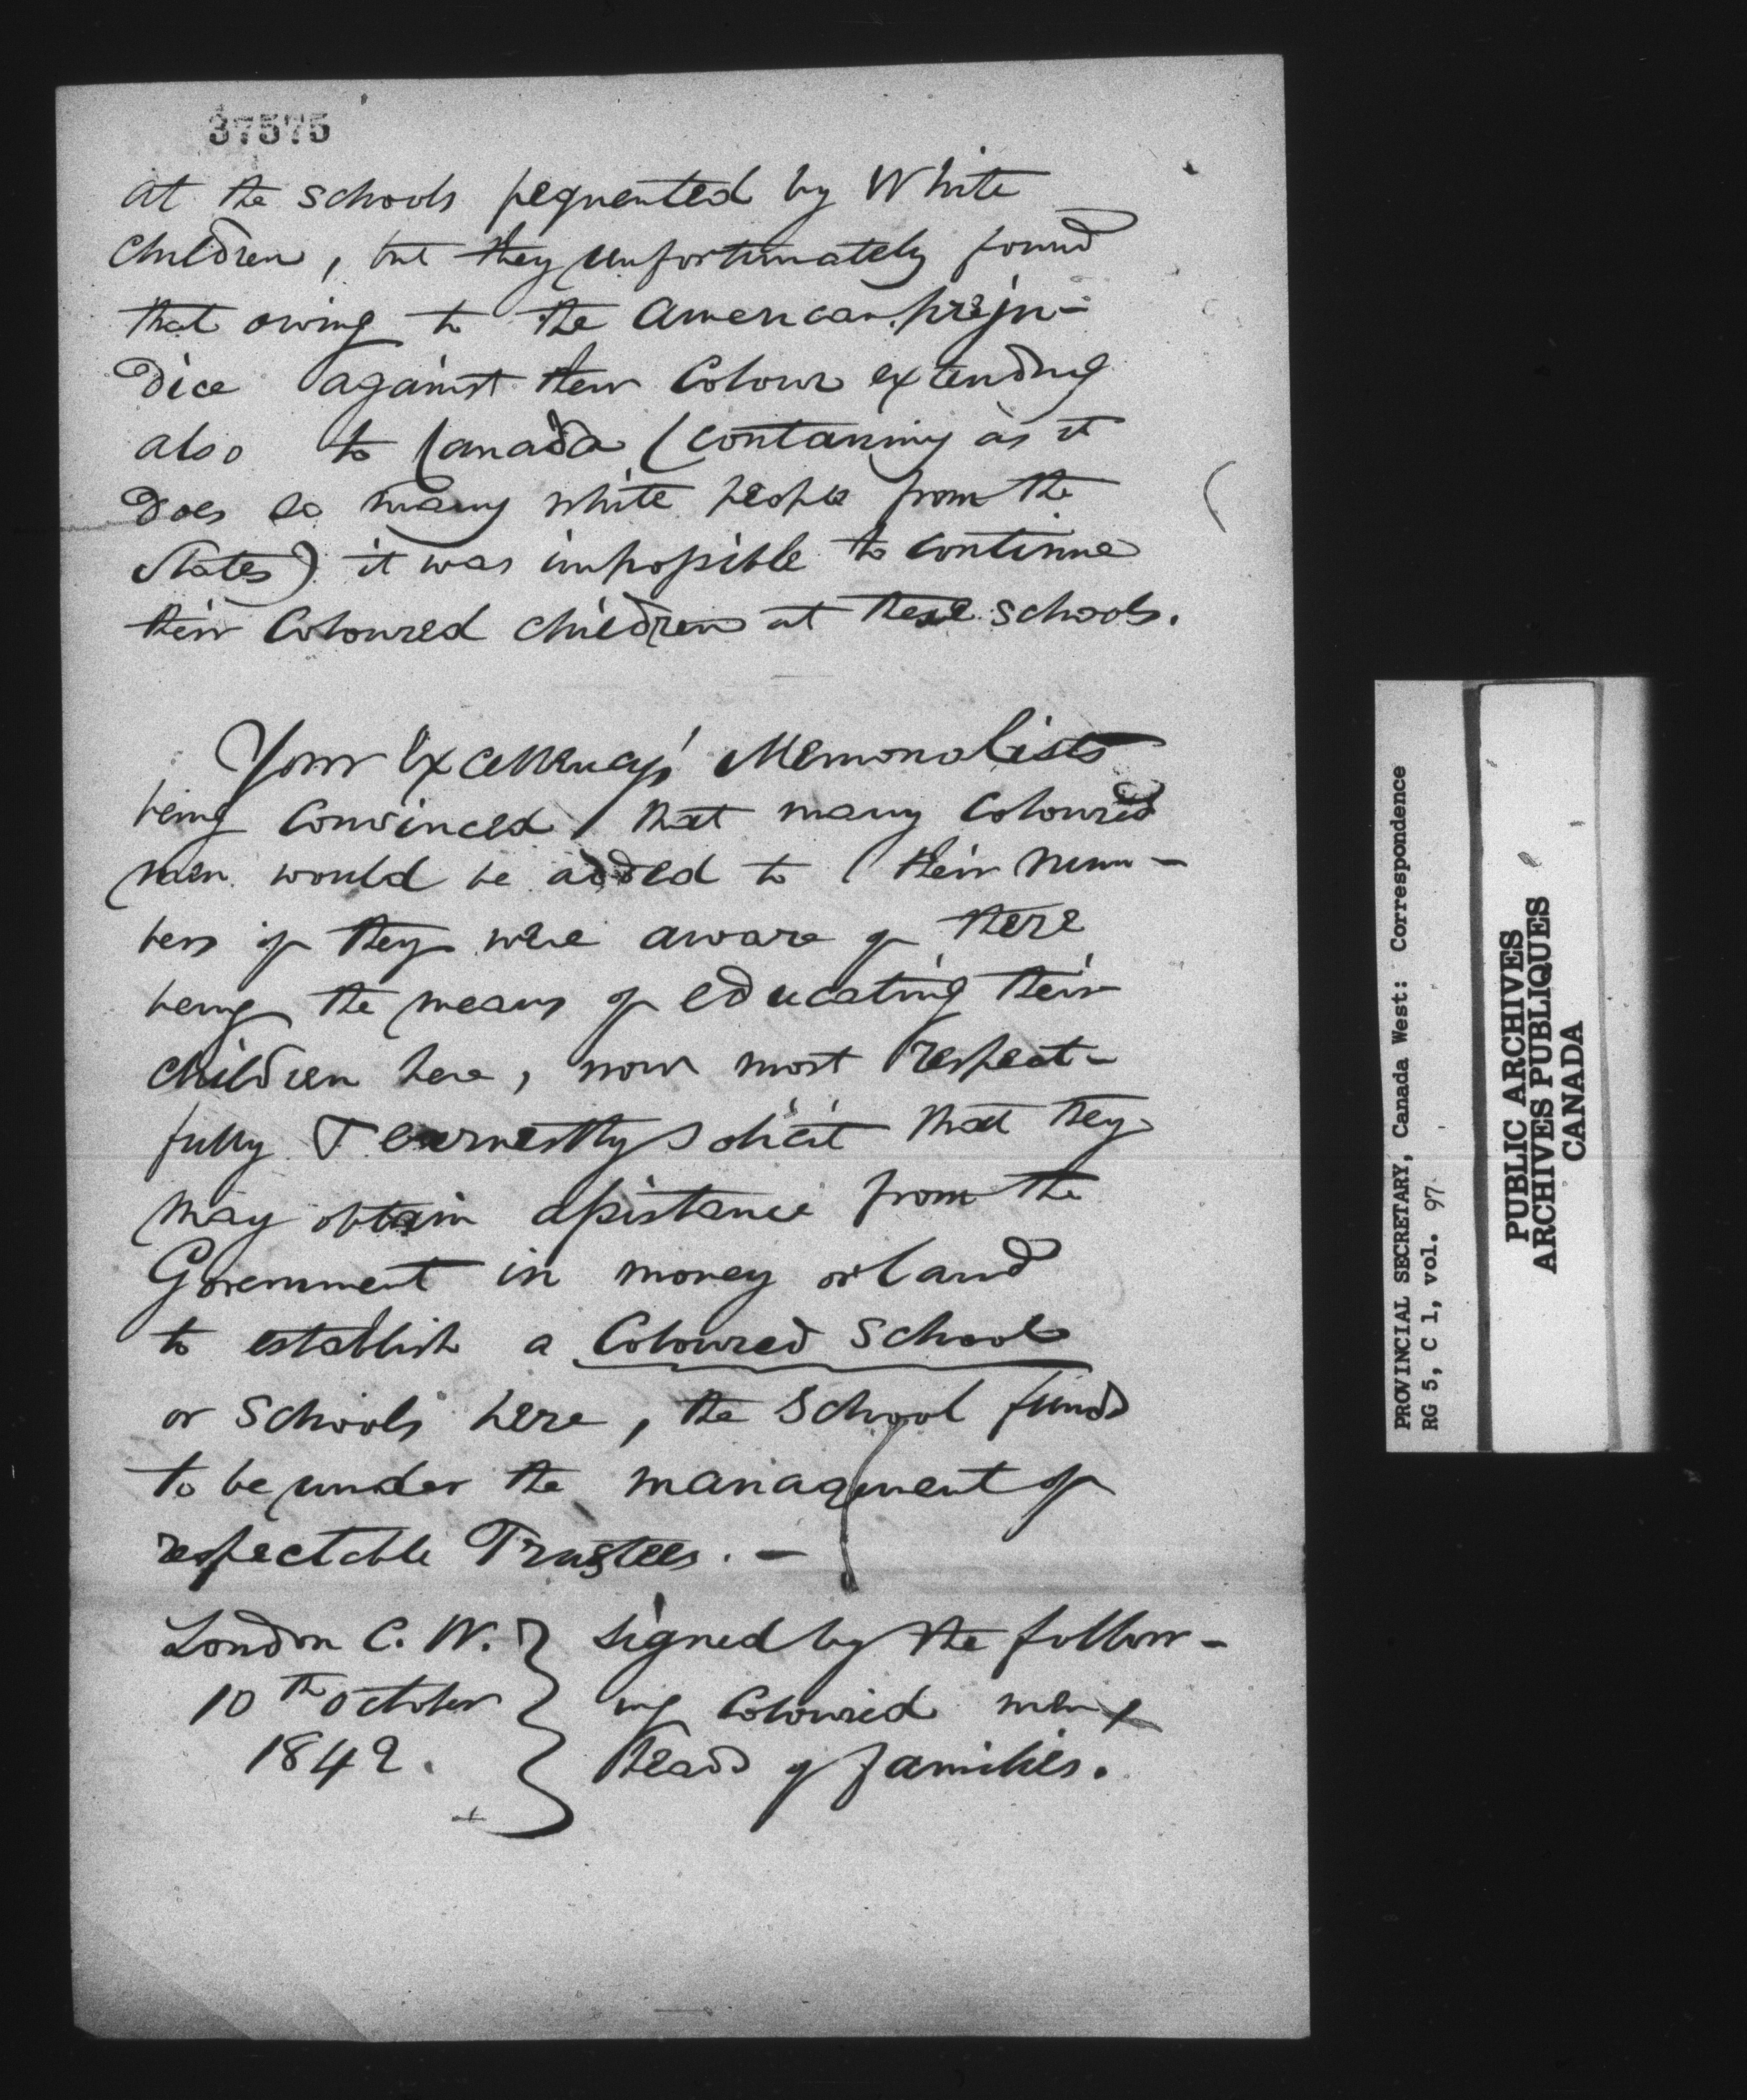 37575
at the schools frequented by White
Children, but they unfortunately found
that owing to the American preju-
dice against their Colour extending
also to Canada (containing as it
does so many white people from the
States) it was impossible to continue
their Coloured children at these schools.
Your Excellency's Memorialists
being convinced that many Coloured
men would be added to their num-
bers if they were aware of there
being the means of educating their
children here, now most respect-
fully & earnestly solicit that they
may obtain assistance from the
Government in money or land
to establish a Coloured School
or Schools here, the School funds
to be under the managment of
respectable Trustees. —
London C. W. } signed by the follow-
10th October } ing Coloured men,
1842. } Heads of families.
PROVINCIAL SECRETARY, Canada West: Correspondence
RG 5, C 1, vol. 97
PUBLIC ARCHIVES
ARCHIVES PUBLIQUES
CANADA